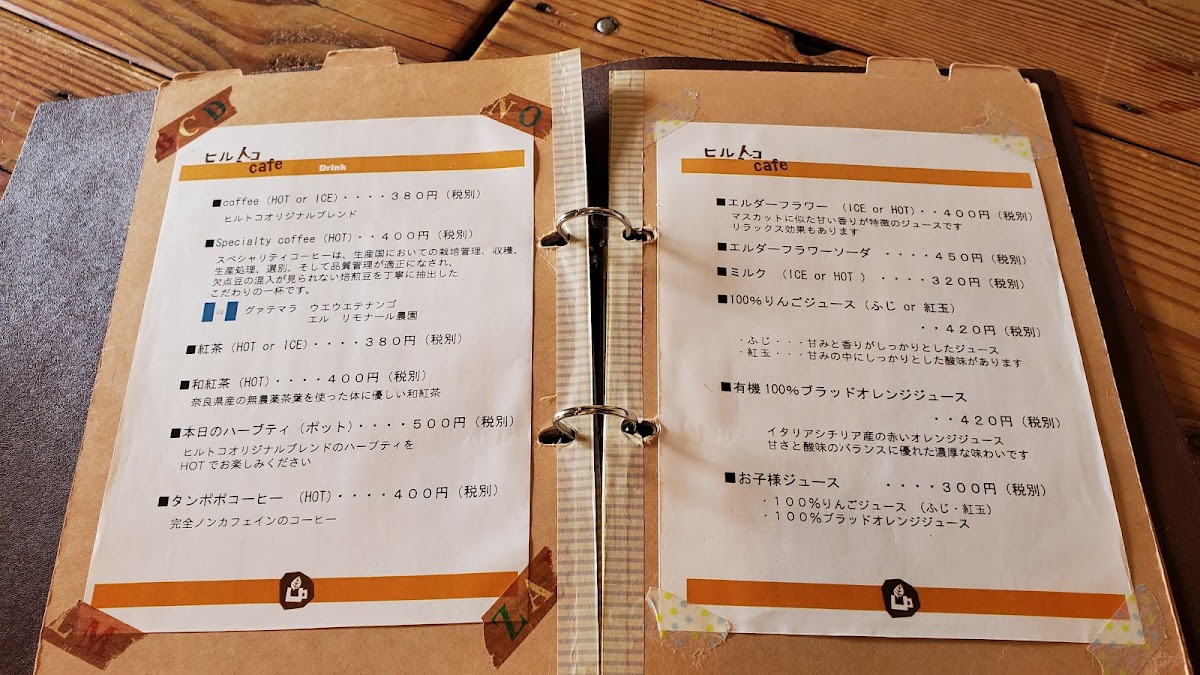 CD
NO
ヒルトコ
cafe
Drink
■coffee (HOT or ICE)・・・・380円（税別）
ヒルトコオリジナルブレンド
■Specialty coffee (HOT)・・400円（税別）
スペシャリティコーヒーは、生産国においての栽培管理、収穫、
生産処理、選別、そして品質管理が適正になされ、
欠点豆の混入が見られない焙煎豆を丁寧に抽出した
こだわりの一杯です。
グァテマラ ウエウエテナンゴ
エル リモナール農園
■紅茶 (HOT or ICE)・・・・380円（税別）
■和紅茶 (HOT)・・・・400円（税別）
奈良県産の無農薬茶葉を使った体に優しい和紅茶
■本日のハーブティ（ポット）・・・・500円（税別）
ヒルトコオリジナルブレンドのハーブティを
HOTでお楽しみください
■タンポポコーヒー (HOT)・・・・400円（税別）
完全ノンカフェインのコーヒー
M
ZA
ヒルトコ
cafe
■エルダーフラワー (ICE or HOT)・・400円（税別）
マスカットに似た甘い香りが特徴のジュースです
リラックス効果もあります
■エルダーフラワーソーダ ・・・・450円（税別）
■ミルク (ICE or HOT )・・・・320円（税別）
■100%りんごジュース（ふじ or 紅玉）
・・420円（税別）
・ふじ・・・甘みと香りがしっかりとしたジュース
・紅玉・・・甘みの中にしっかりとした酸味があります
■有機100%ブラッドオレンジジュース
・・420円（税別）
イタリアシチリア産の赤いオレンジジュース
甘さと酸味のバランスに優れた濃厚な味わいです
■お子様ジュース ・・・・300円（税別）
・100%りんごジュース （ふじ・紅玉）
・100%ブラッドオレンジジュース